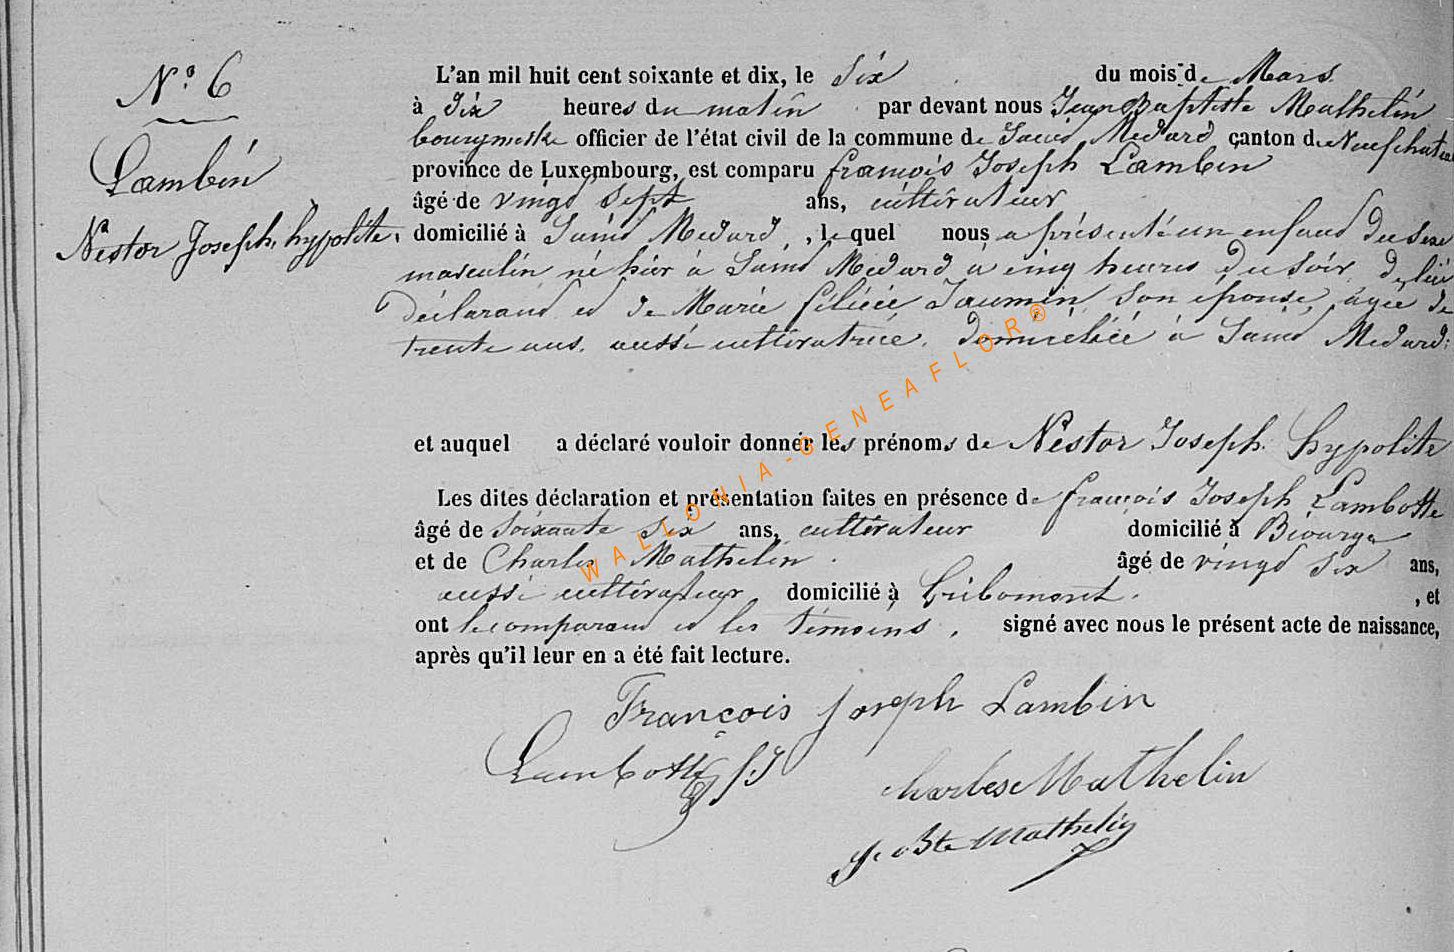 N° 6
Lambin
Nestor Joseph, hypolite.
L'an mil huit cent soixante et dix, le Six du mois de Mars
à dix heures du matin par devant nous Jean Baptiste Mathelin
bourgmestre officier de l'état civil de la commune de Saint Médard canton de Neufchateau
province de Luxembourg, est comparu françois Joseph Lambin
âgé de vingt Sept ans, cultivateur
domicilié à Saint Medard, le quel nous a présenté un enfant du sexe
masculin né hier à Saint Medard à cinq heures du soir de lui
déclarant et de Marie félicié Jaumin son épouse, agée de
trente ans, aussi cultivatrice, domiciliée à Saint Medard:
et auquel a déclaré vouloir donner les prénoms de Nestor Joseph hypolite
Les dites déclaration et présentation faites en présence de françois Joseph Lambotte
âgé de Soixante Six ans, cultivateur domicilié à Biourge
et de Charles Mathelin âgé de vingt Six ans,
aussi cultivateur, domicilié à Gribomont. , et
ont le comparant et les témoins, signé avec nous le présent acte de naissance,
après qu'il leur en a été fait lecture.
François Joseph Lambin
Lambotte f.J
Charles Mathelin
J. Bte Mathelin
WALLONIA-GENEAFLOR®